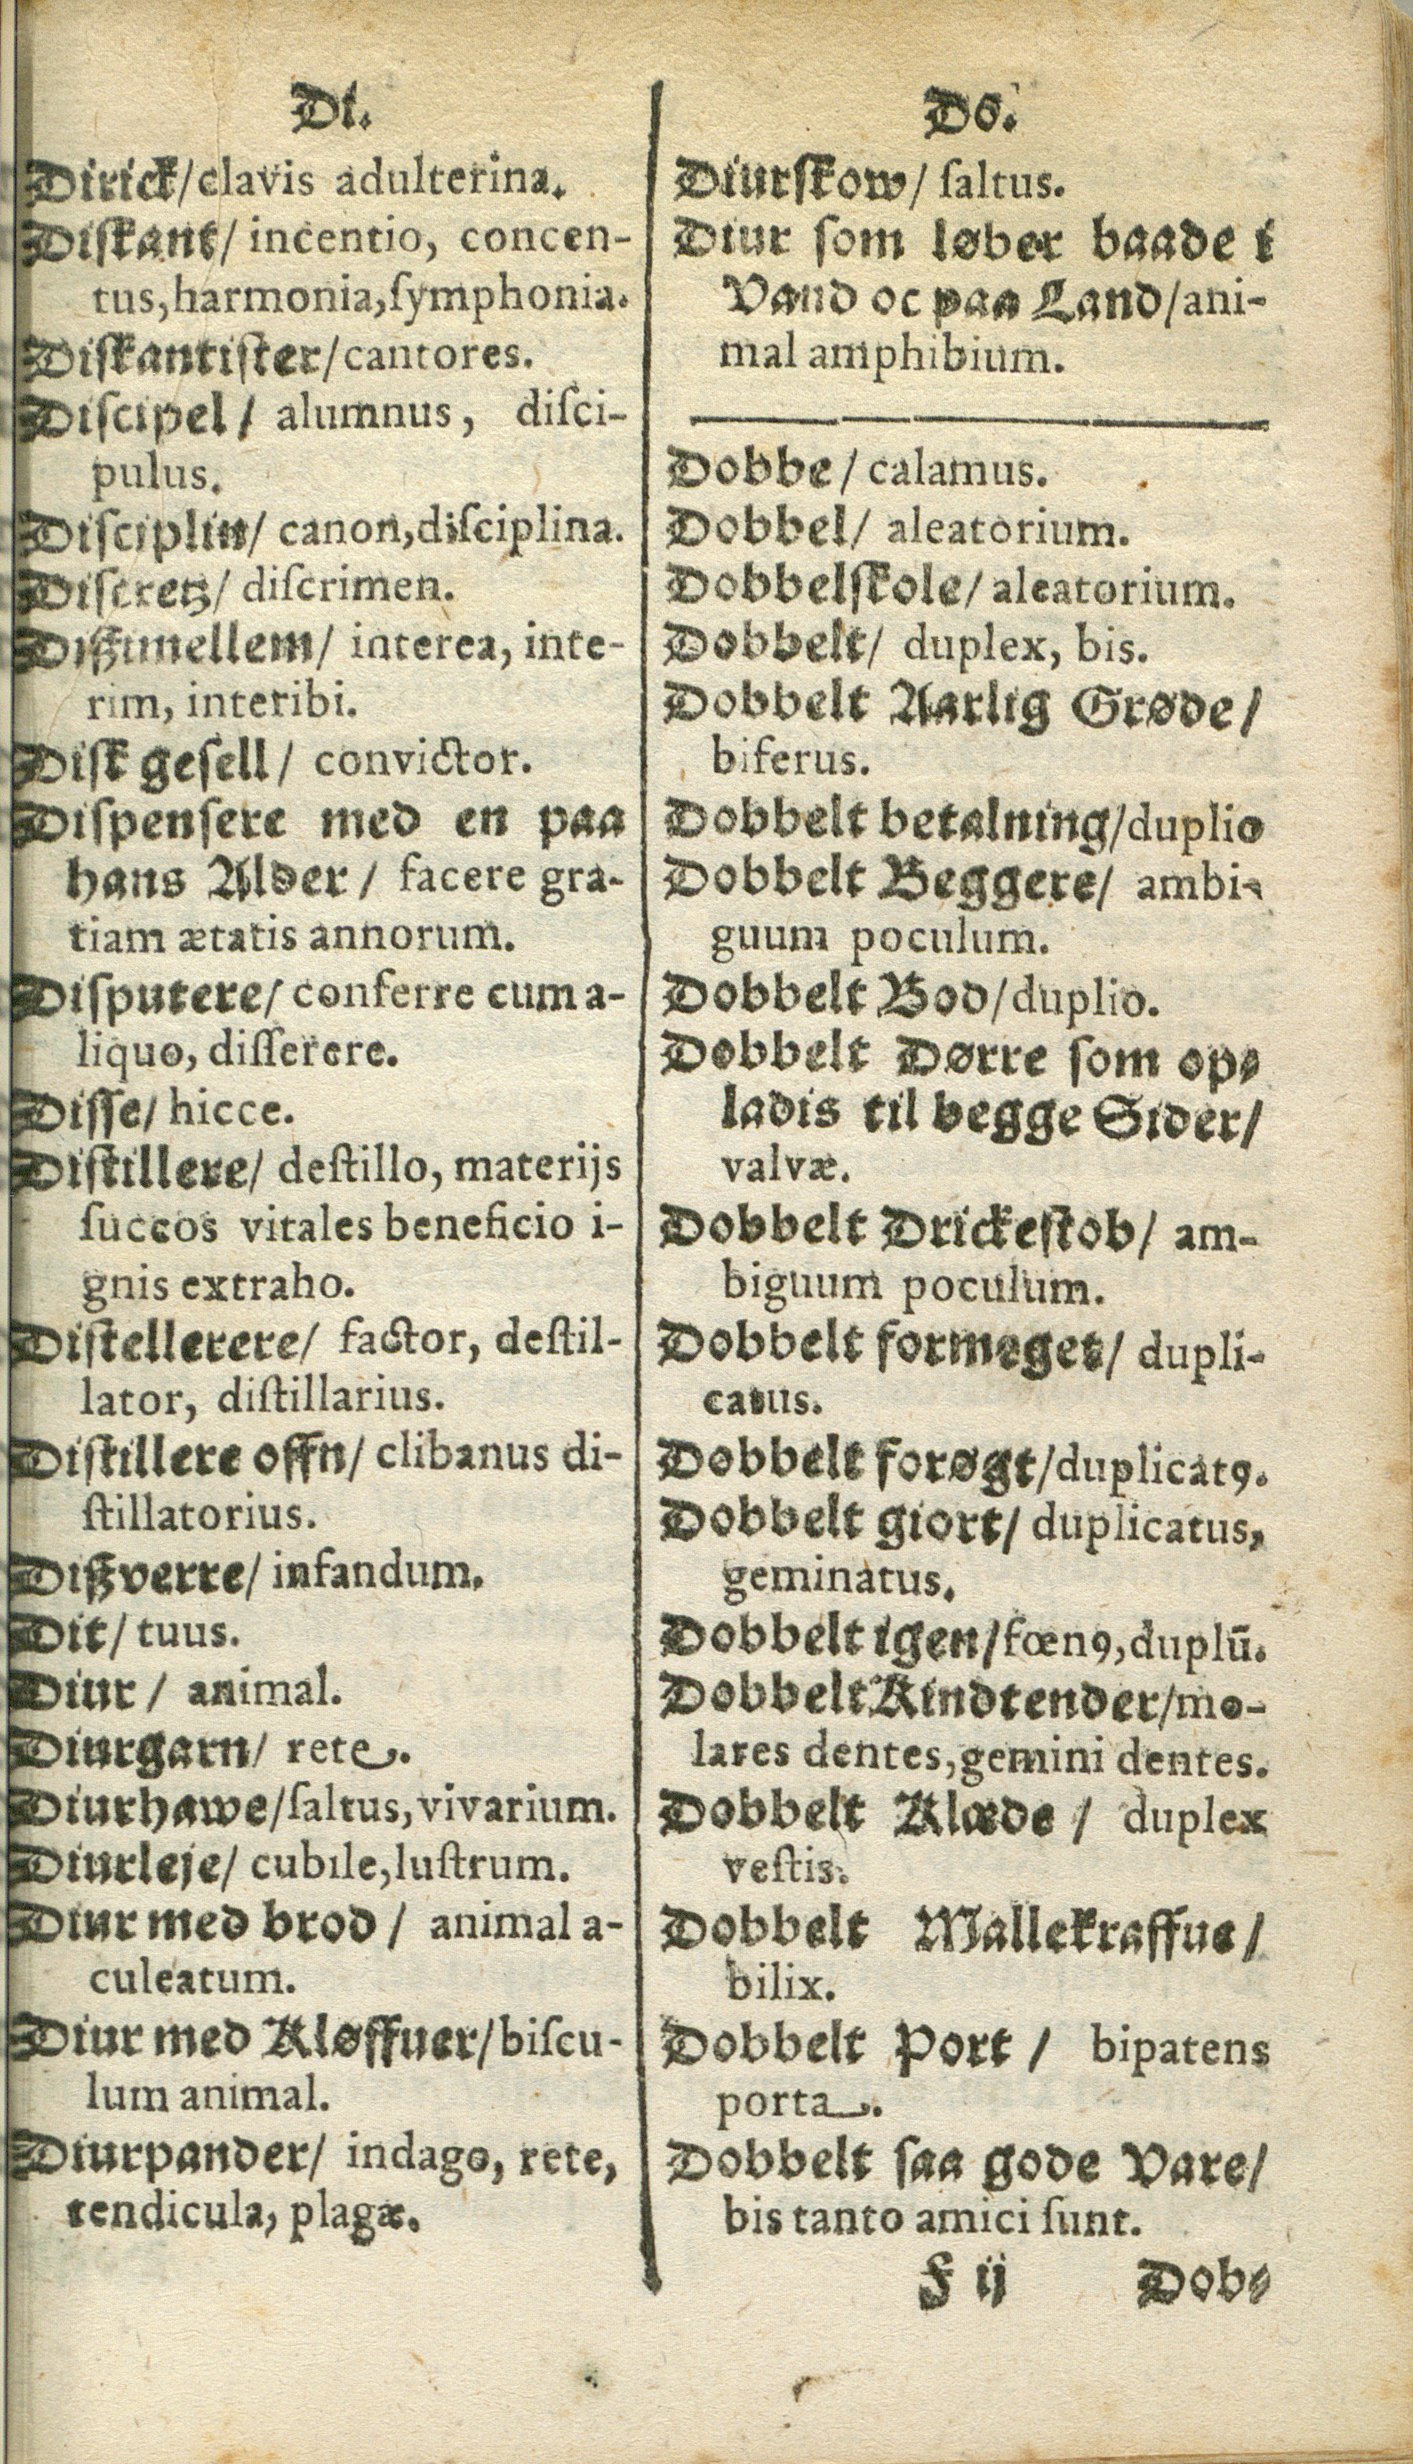 Di.
Dirick/clavis adulterina.
Diſkant/ incentio, concen-
tus,harmonia,ſymphonia.
Diſkantiſter/cantores.
Diſcipel/ alumnus, diſci-
pulus.
Diſciplin/ canon,diſciplina.
Diſcretz/ diſcrimen.
Dißimellem/ interea, inte-
rim, interibi.
Diſk geſell/ convictor.
Diſpenſere med en paa
hans Alder/ facere gra-
tiam ætatis annorum.
Diſputere/ conferre cum a-
liquo, diſſerere.
Diſſe/ hicce.
Diſtillere/ deſtillo, materijs
ſuccos vitales beneficio i-
gnis extraho.
Diſtellerere/ factor, deſtil-
lator, diſtillarius.
Diſtillere offn/ clibanus di-
ſtillatorius.
Dißverre/ infandum.
Dit/ tuus.
Diur/ animal.
Diurgarn/ rete.
Diurhawe/ſaltus,vivarium.
Diurleje/ cubile,luſtrum.
Diur med brod/ animal a-
culeatum.
Diur med Kløffuer/biſcu-
lum animal.
Diurpander/ indago, rete,
tendicula, plagæ.
Do.
Diurſkow/ ſaltus.
Diur ſom løber baade i
Vand oc paa Land/ani-
mal amphibium.
Dobbe/ calamus.
Dobbel/ aleatorium.
Dobbelſkole/ aleatorium.
Dobbelt/ duplex, bis.
Dobbelt Aarlig Grøde/
biferus.
Dobbelt betalning/duplio
Dobbelt Beggere/ ambi-
guum poculum.
Dobbelt Bod/duplio.
Dobbelt Dørre ſom op-
ladis til begge Sider/
valvæ.
Dobbelt Drickeſtob/ am-
biguum poculum.
Dobbelt formeget/ dupli-
catus.
Dobbelt forøgt/duplicatꝰ.
Dobbelt giort/ duplicatus,
geminatus.
Dobbelt igen/fœnꝰ,duplū.
Dobbelt Kindtender/mo-
lares dentes,gemini dentes.
Dobbelt Klæde/ duplex
veſtis.
Dobbelt Mallekraffue/
bilix.
Dobbelt Port/ bipatens
porta.
Dobbelt ſaa gode Vare/
bis tanto amici ſunt.
F ij Dob-